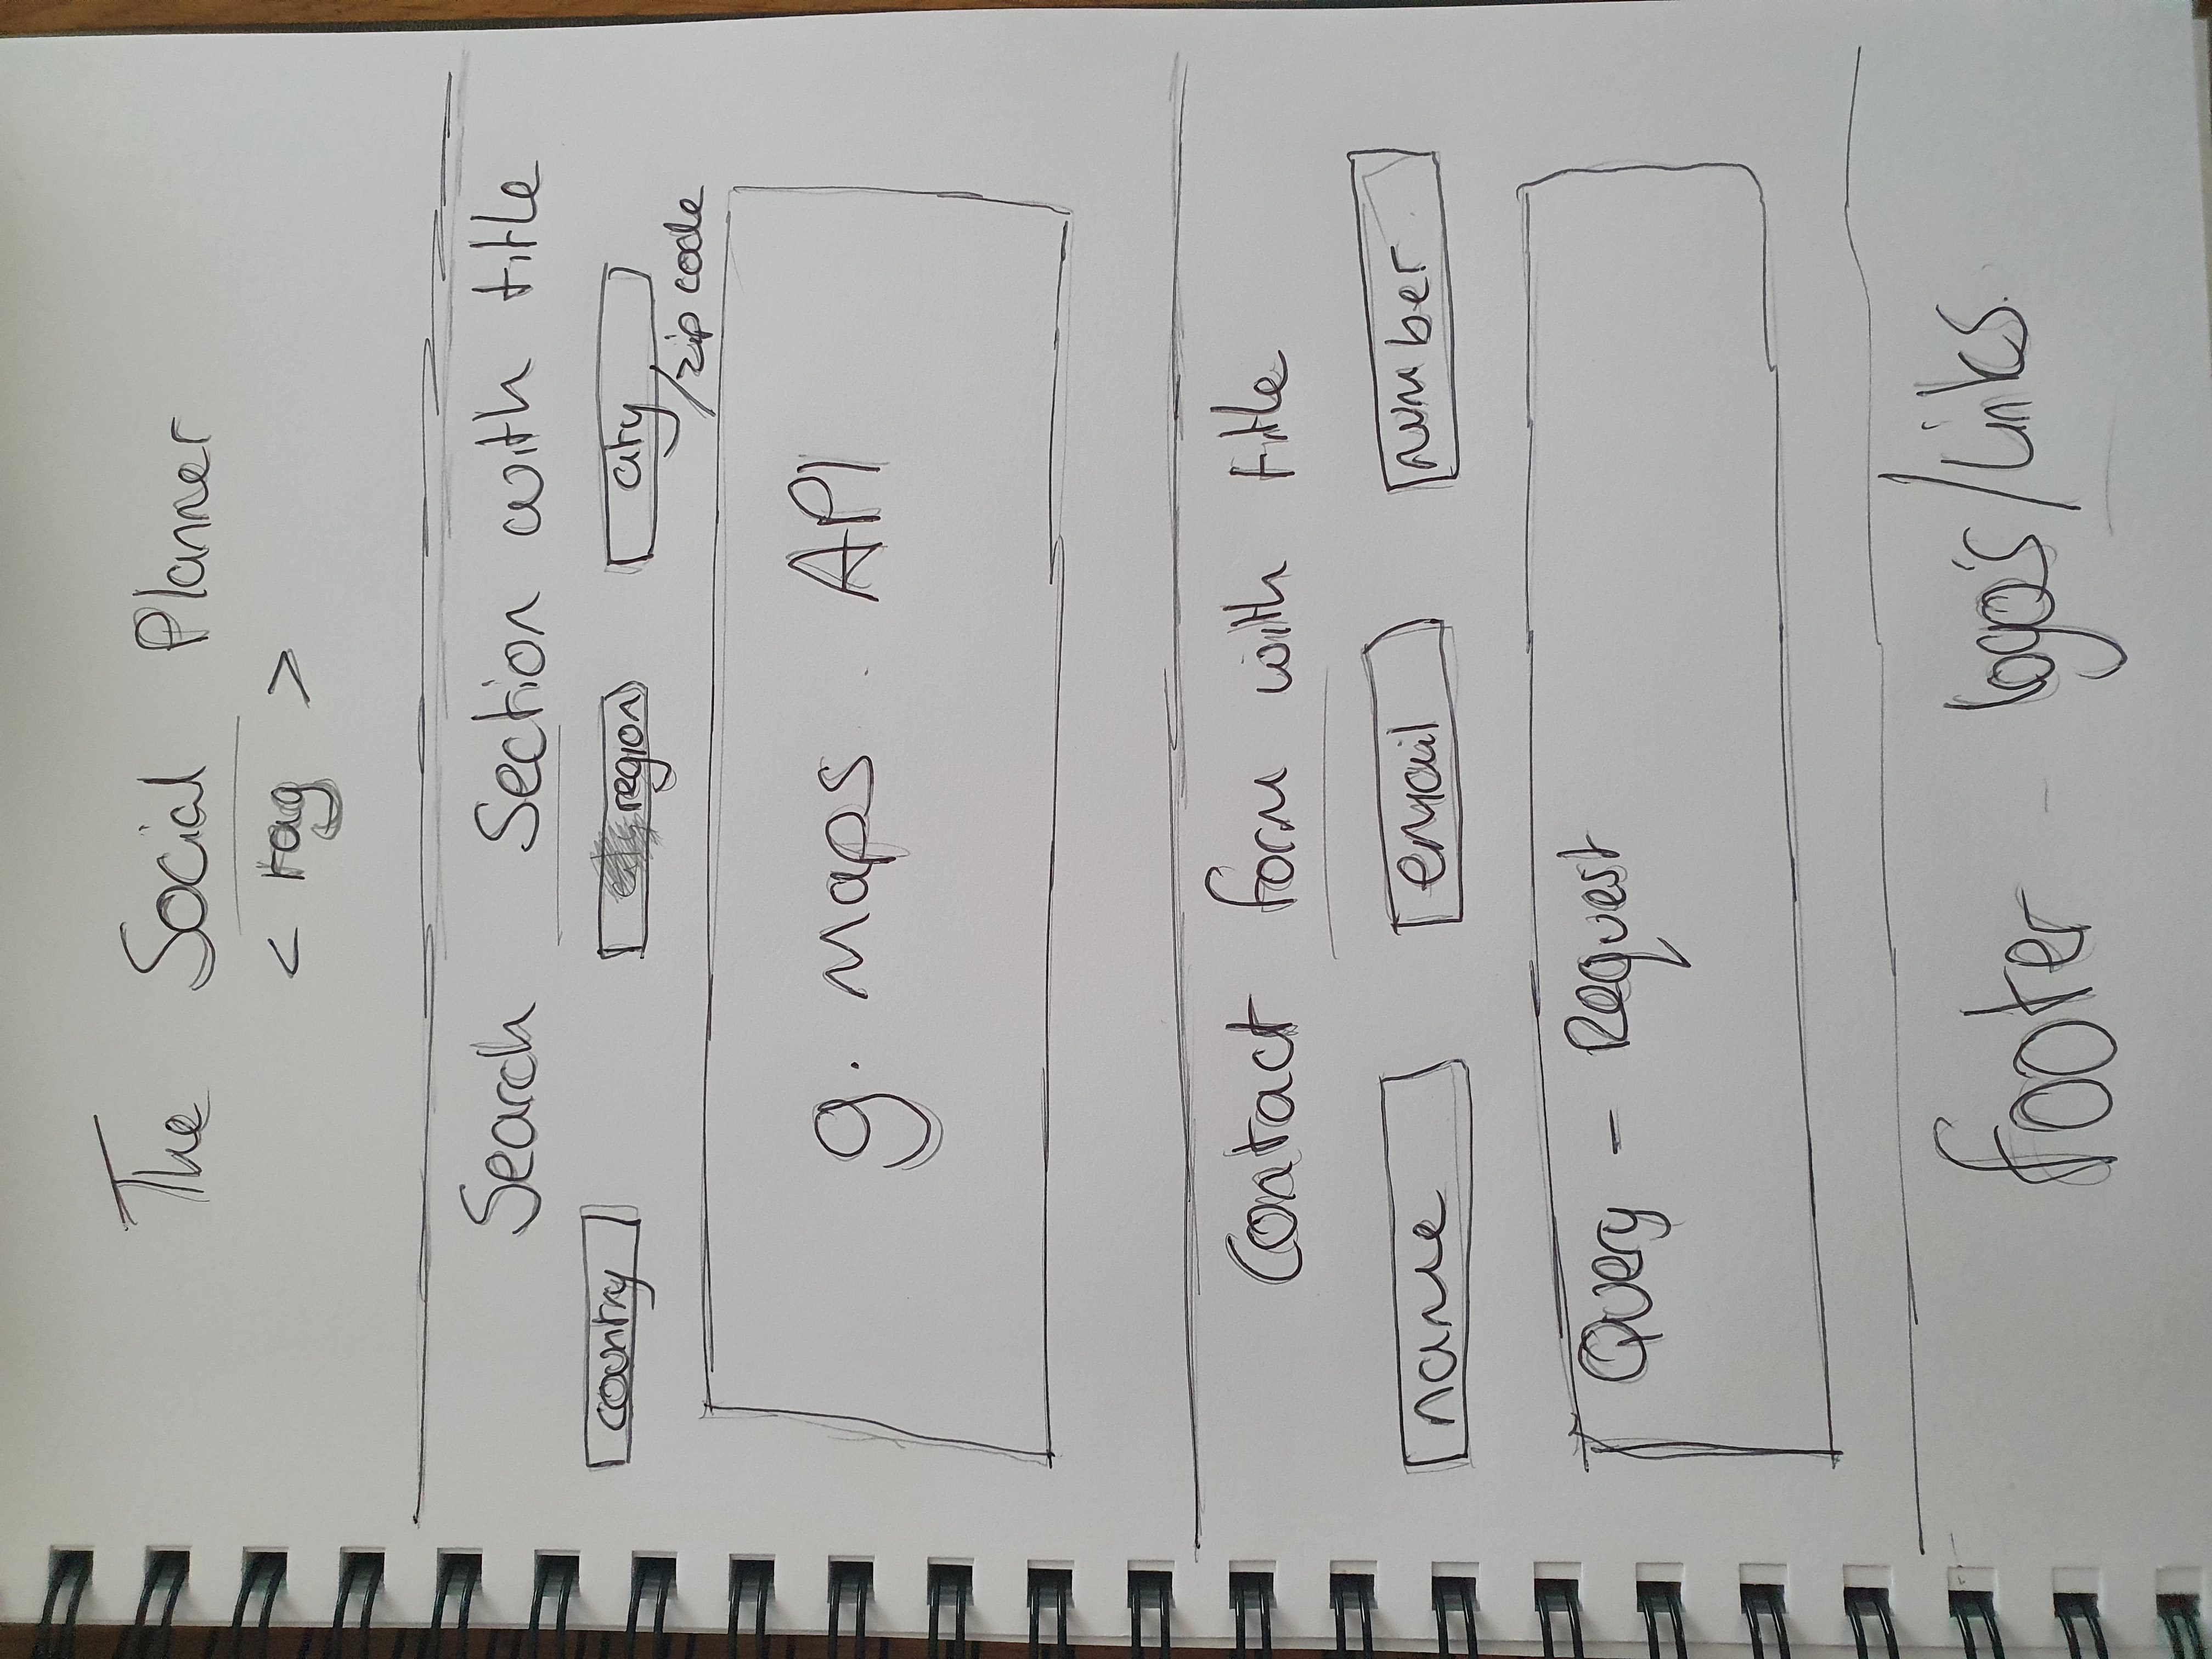 The Social Planner
< tag >
Search Section with title
country region city
/zip code
g. Maps API
Contact form with title
name email number
Query - Request
footer - logo's/Links.